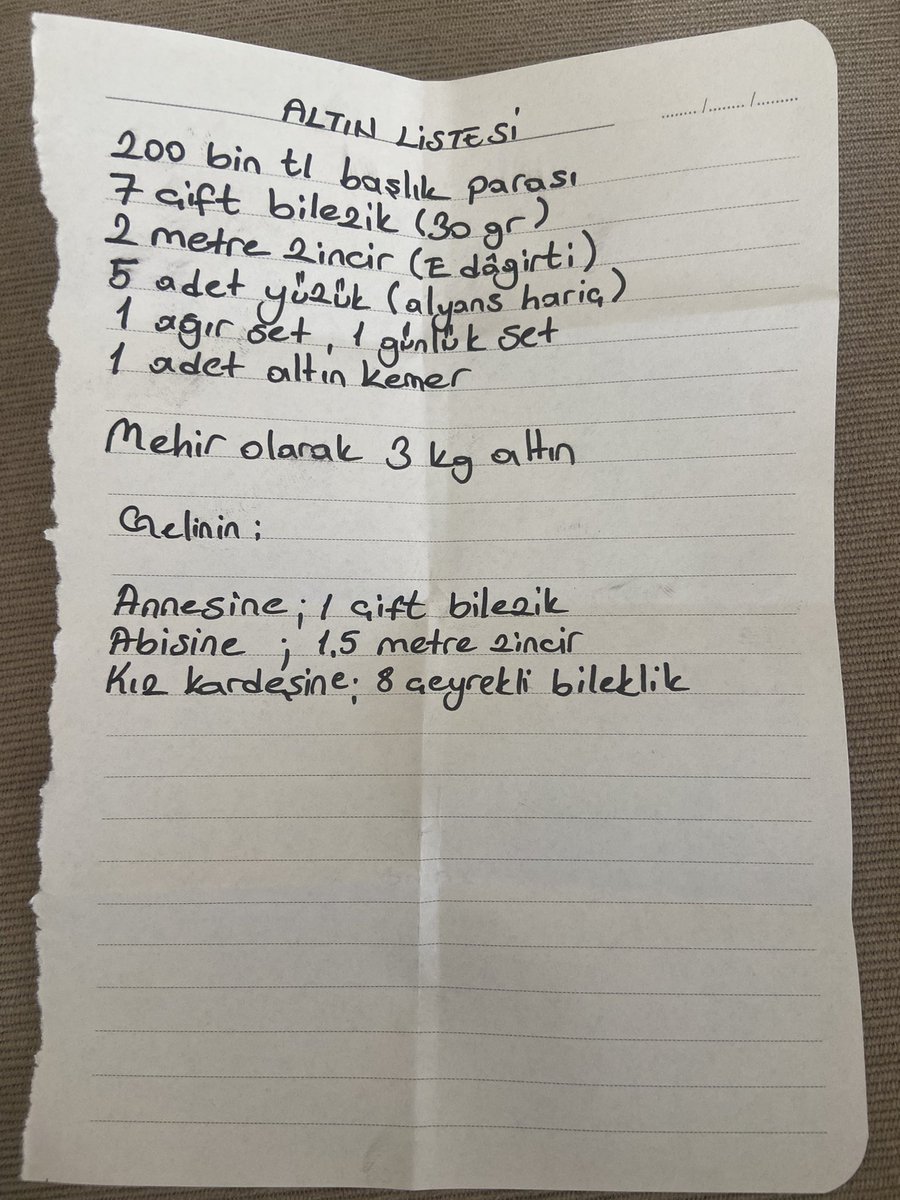 ....... /........ /.........
ALTIN LİSTESİ
200 bin tl başlık parası
7 çift bilezik (30 gr)
2 metre zincir (Edâgirti)
5 adet yüzük (alyans hariç)
1 ağır set, 1 günlük set
1 adet altın kemer
Mehir olarak 3 kg altın
Gelinin;
Annesine; 1 çift bilezik
Abisine ; 1.5 metre zincir
Kız kardeşine; 8 çeyrekli bileklik